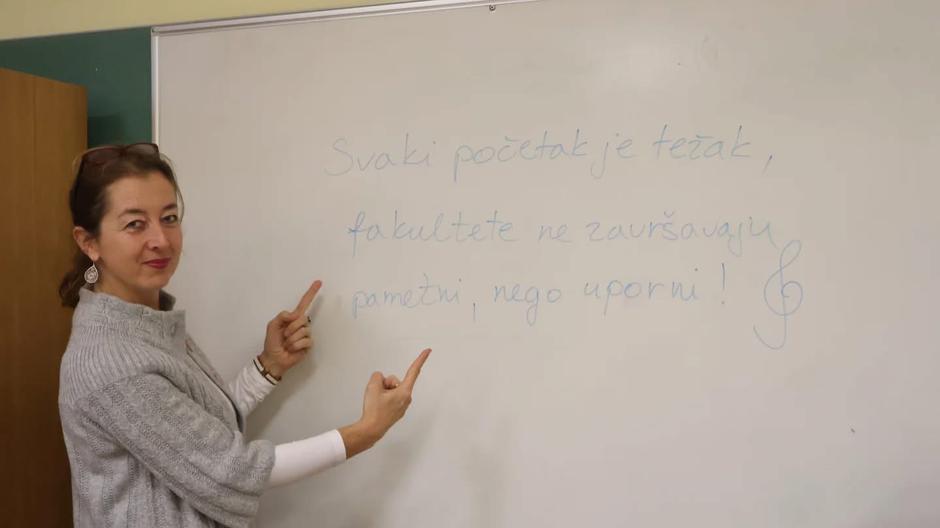 Svaki početak je težak,
fakultete ne završavaju
pametni, nego uporni!